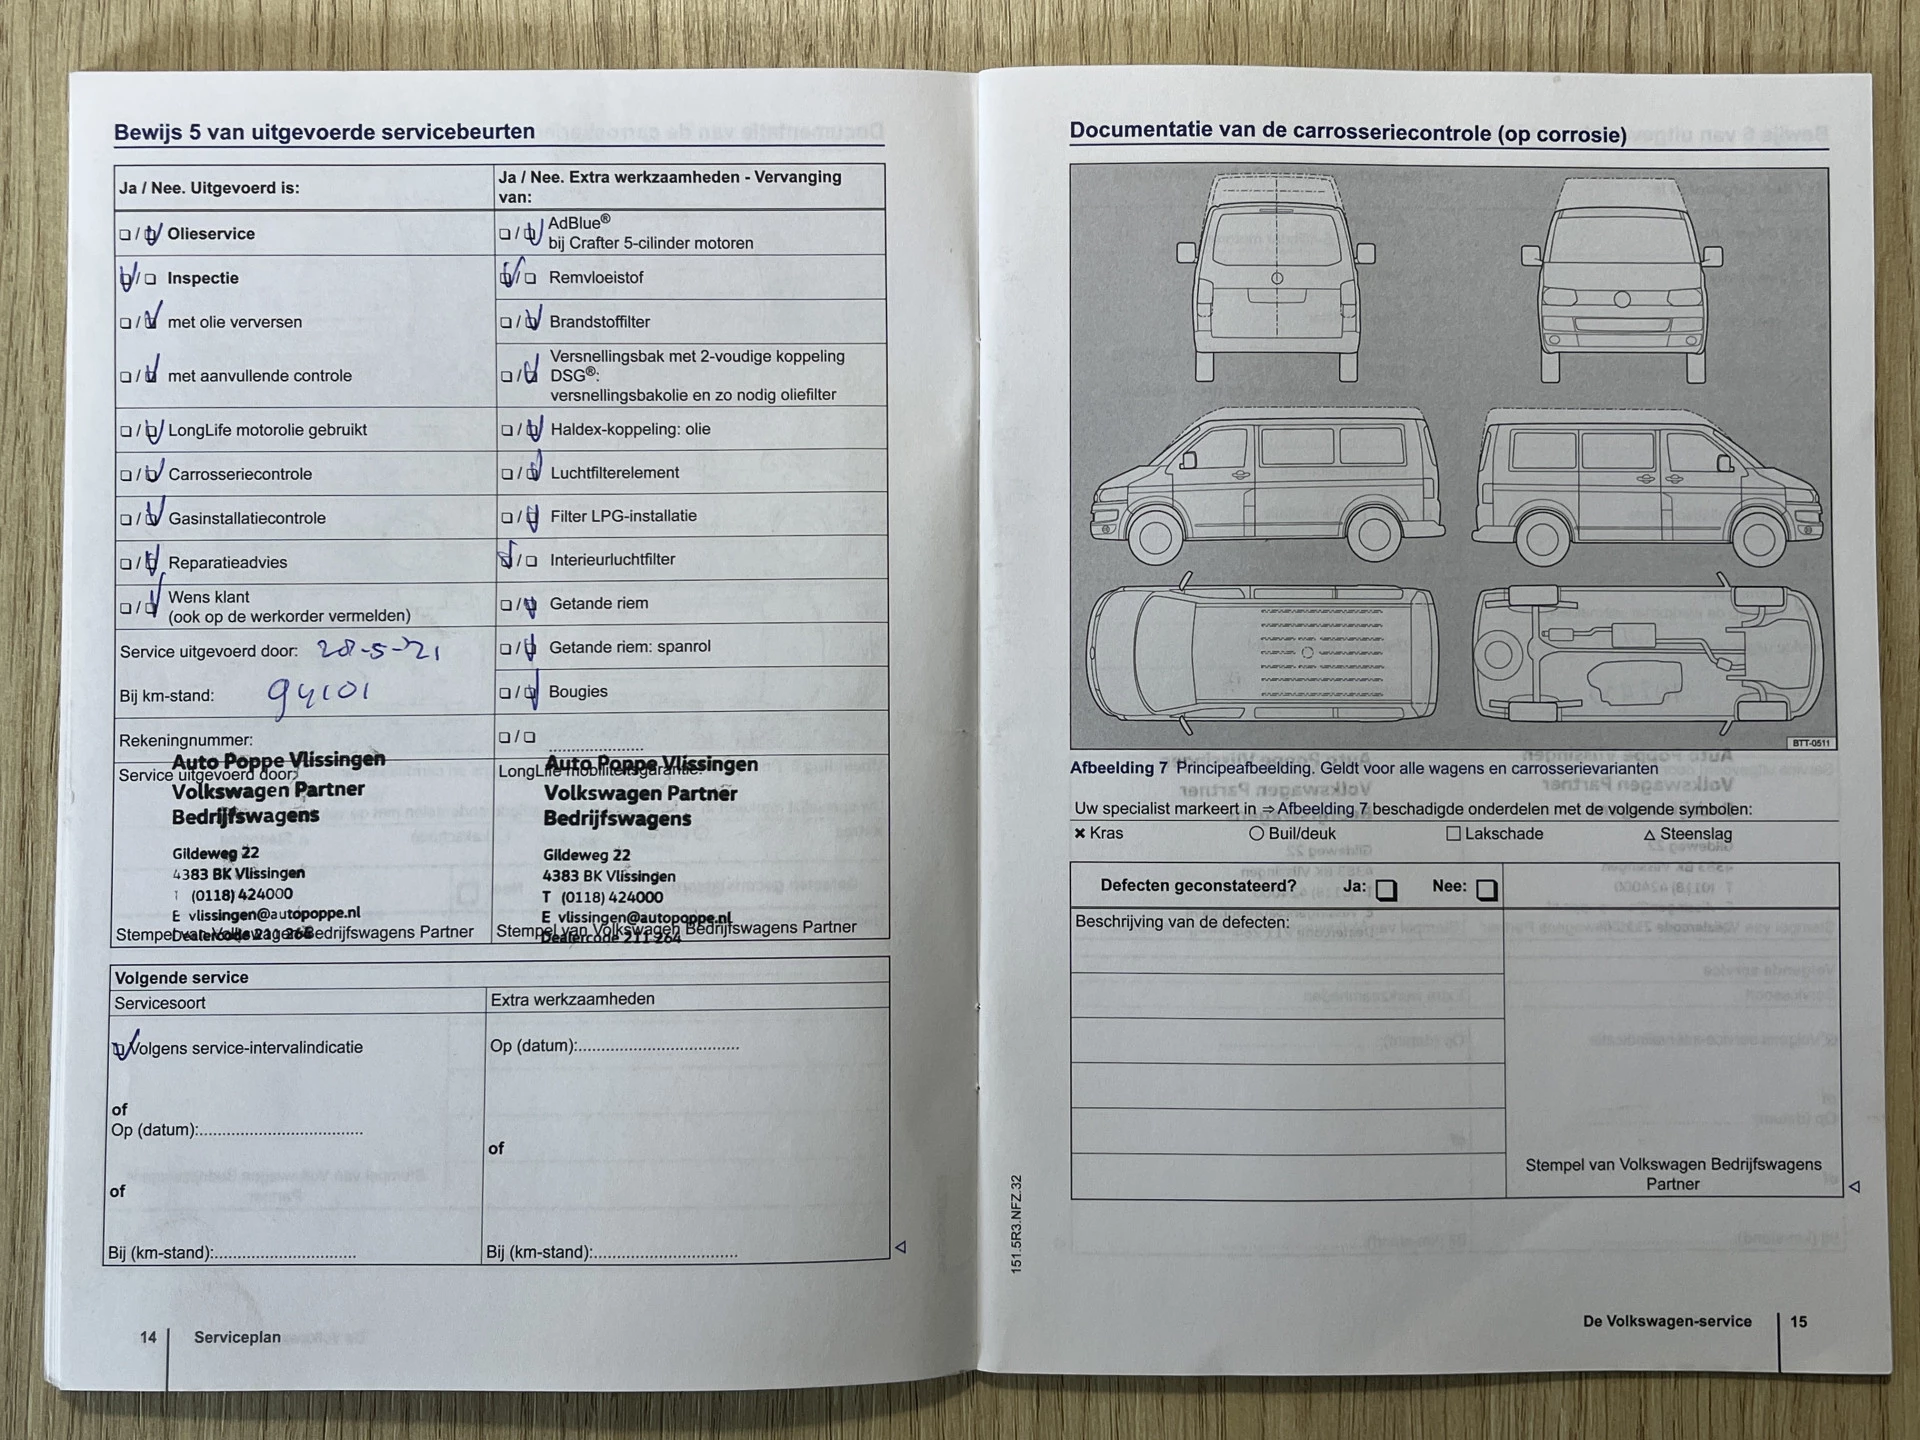 Bewijs 5 van uitgevoerde servicebeurten
Ja / Nee. Uitgevoerd is:
Olieservice
Inspectie
met olie verversen
met aanvullende controle
LongLife motorolie gebruikt
Carrosseriecontrole
Gasinstallatiecontrole
Reparatieadvies
Wens klant
(ook op de werkorder vermelden)
Service uitgevoerd door: 28-5-21
Bij km-stand: 94101
Rekeningnummer:
Service uitgevoerd door:
Auto Poppe Vlissingen
Volkswagen Partner
Bedrijfswagens
Gildeweg 22
4383 BK Vlissingen
T (0118) 424000
E vlissingen@autopoppe.nl
Dealercode 211 264
Stempel van Volkswagen Bedrijfswagens Partner
Ja / Nee. Extra werkzaamheden - Vervanging
van:
AdBlue®
bij Crafter 5-cilinder motoren
Remvloeistof
Brandstoffilter
Versnellingsbak met 2-voudige koppeling
DSG®:
versnellingsbakolie en zo nodig oliefilter
Haldex-koppeling: olie
Luchtfilterelement
Filter LPG-installatie
Interieurluchtfilter
Getande riem
Getande riem: spanrol
Bougies
LongLife mobiliteitsgarantie:
Auto Poppe Vlissingen
Volkswagen Partner
Bedrijfswagens
Gildeweg 22
4383 BK Vlissingen
T (0118) 424000
E vlissingen@autopoppe.nl
Dealercode 211 264
Stempel van Volkswagen Bedrijfswagens Partner
Volgende service
Servicesoort
Volgens service-intervalindicatie
of
Op (datum):
of
Bij (km-stand):
Extra werkzaamheden
Op (datum):
of
Bij (km-stand):
14 Serviceplan
Documentatie van de carrosseriecontrole (op corrosie)
BTT-0511
Afbeelding 7 Principeafbeelding. Geldt voor alle wagens en carrosserievarianten
Uw specialist markeert in ⇒ Afbeelding 7 beschadigde onderdelen met de volgende symbolen:
× Kras ○ Buil/deuk □ Lakschade △ Steenslag
Defecten geconstateerd? Ja: Nee:
Beschrijving van de defecten:
Stempel van Volkswagen Bedrijfswagens
Partner
151.5R3.NFZ.32
De Volkswagen-service 15